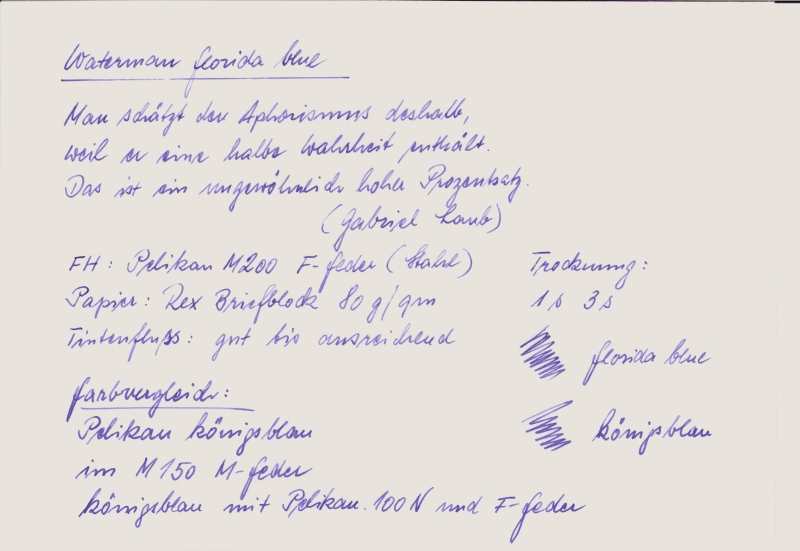 Waterman florida blue
Man schätzt den Aphorismus deshalb,
weil er eine halbe Wahrheit enthält.
Das ist ein ungewöhnlich hoher Prozentsatz.
(Gabriel Laub)
FH: Pelikan M200 F-Feder (Stahl)
Papier: Rex Briefblock 80g/qm
Tintenfluss: gut bis ausreichend
Trocknung:
1s 3s
florida blue
königsblau
Farbvergleich:
Pelikan königsblau
im M150 M-Feder
königsblau mit Pelikan 100N und F-Feder